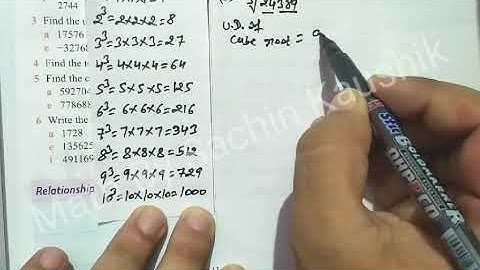 2744
3 Find the
a 17576
e -32768
4 Find the
5 Find the c
a 592704
e 778688
6 Write the
a 1728
e 135625
i 491169
Relationship
2³=2×2×2=8
3³=3×3×3=27
4³=4×4×4=64
5³=5×5×5=125
6³=6×6×6=216
7³=7×7×7=343
8³=8×8×8=512
9³=9×9×9=729
10³=10×10×10=1000
∛24389
U.D. of
Cube root = 9
Sachin Kaushik